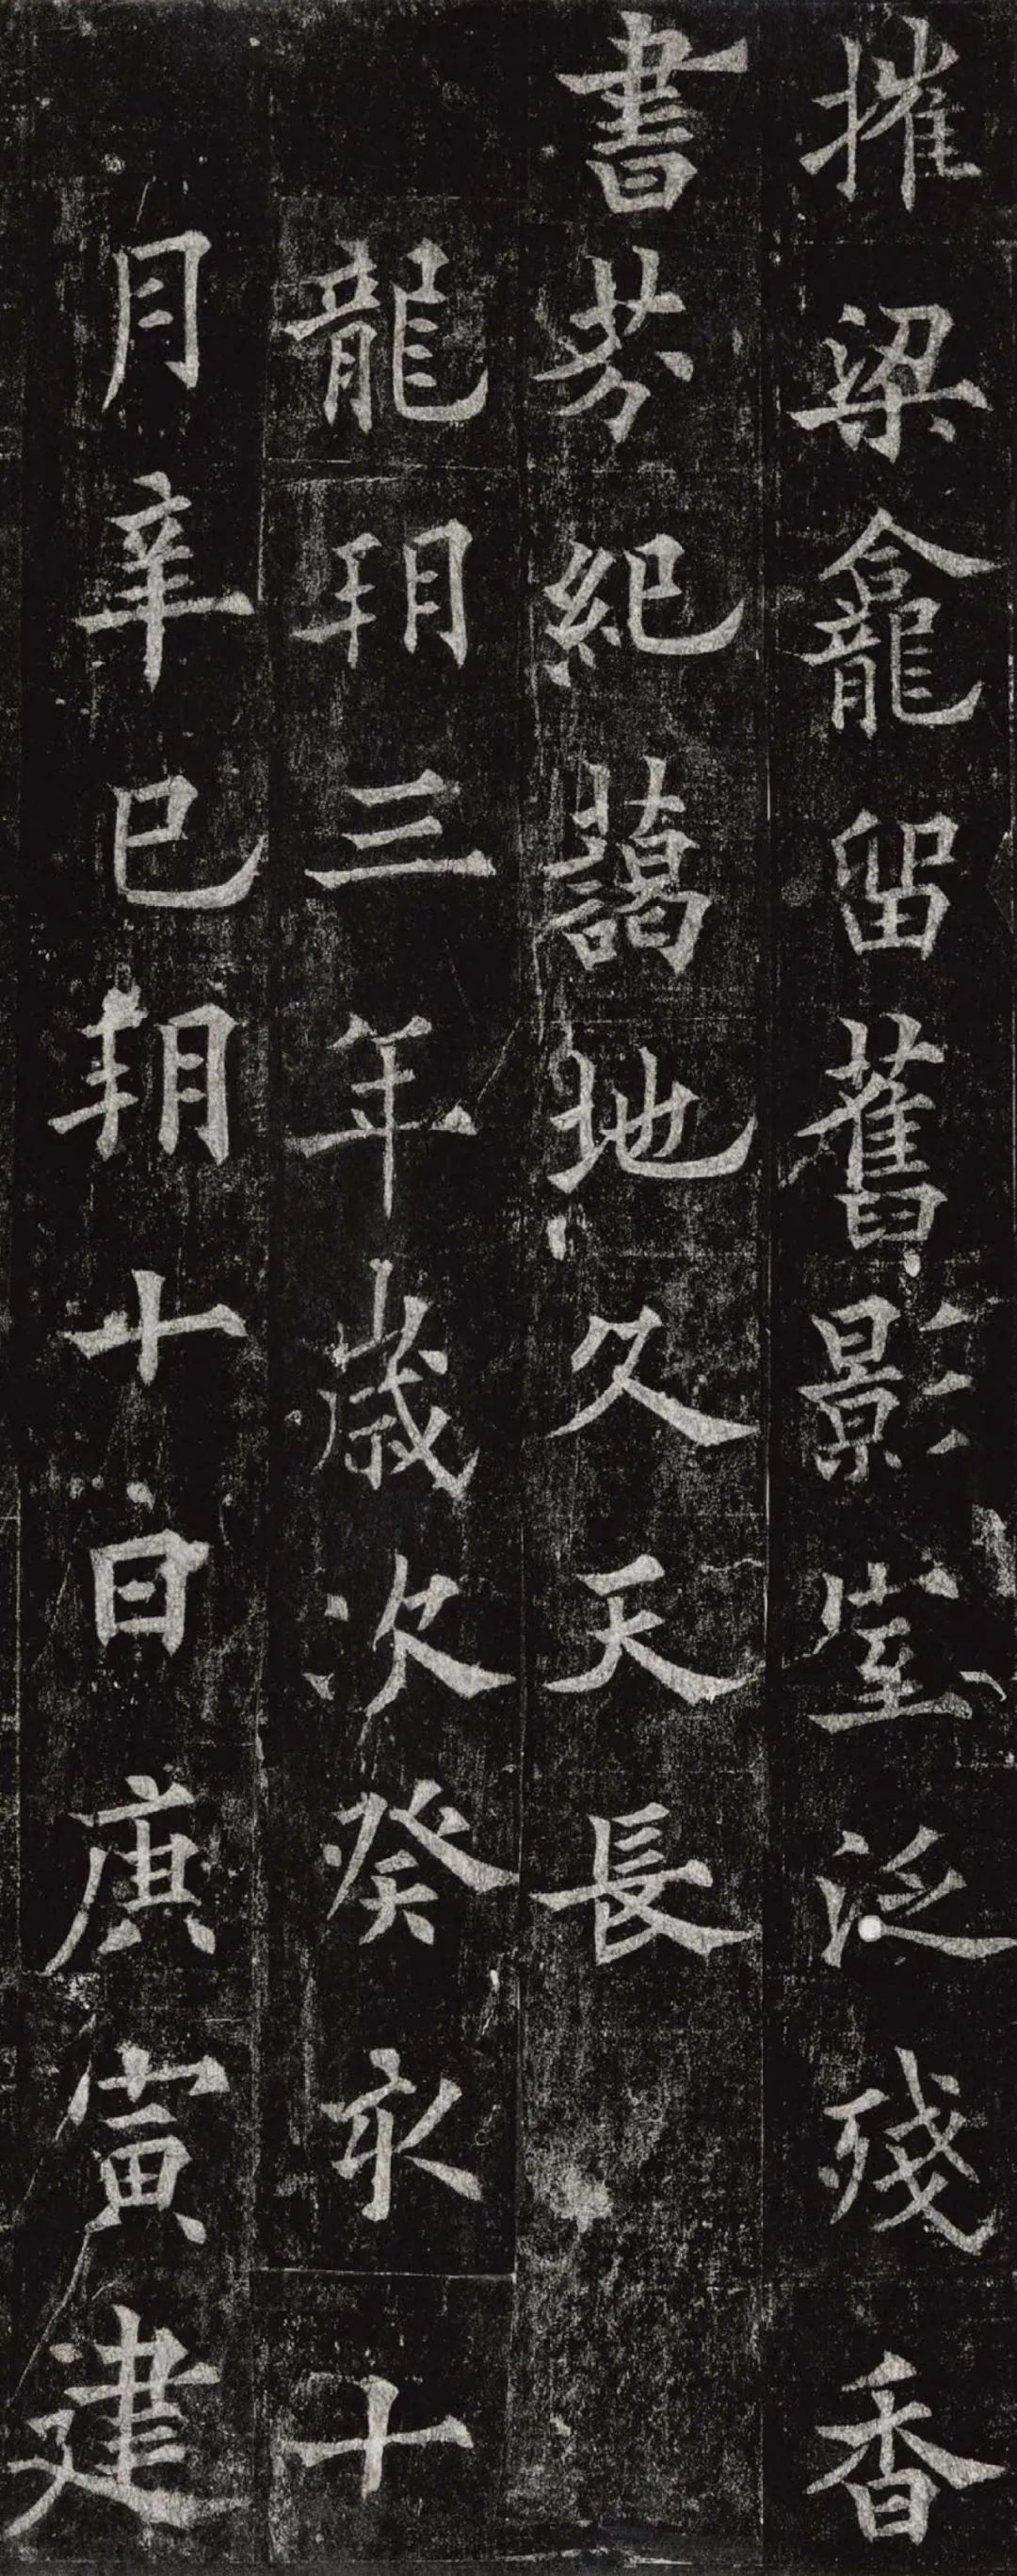 摧梁龕留舊影室泛殘香
書芬紀藹地久天長
龍朔三年歲次癸亥十
月辛巳朔十日庚寅建